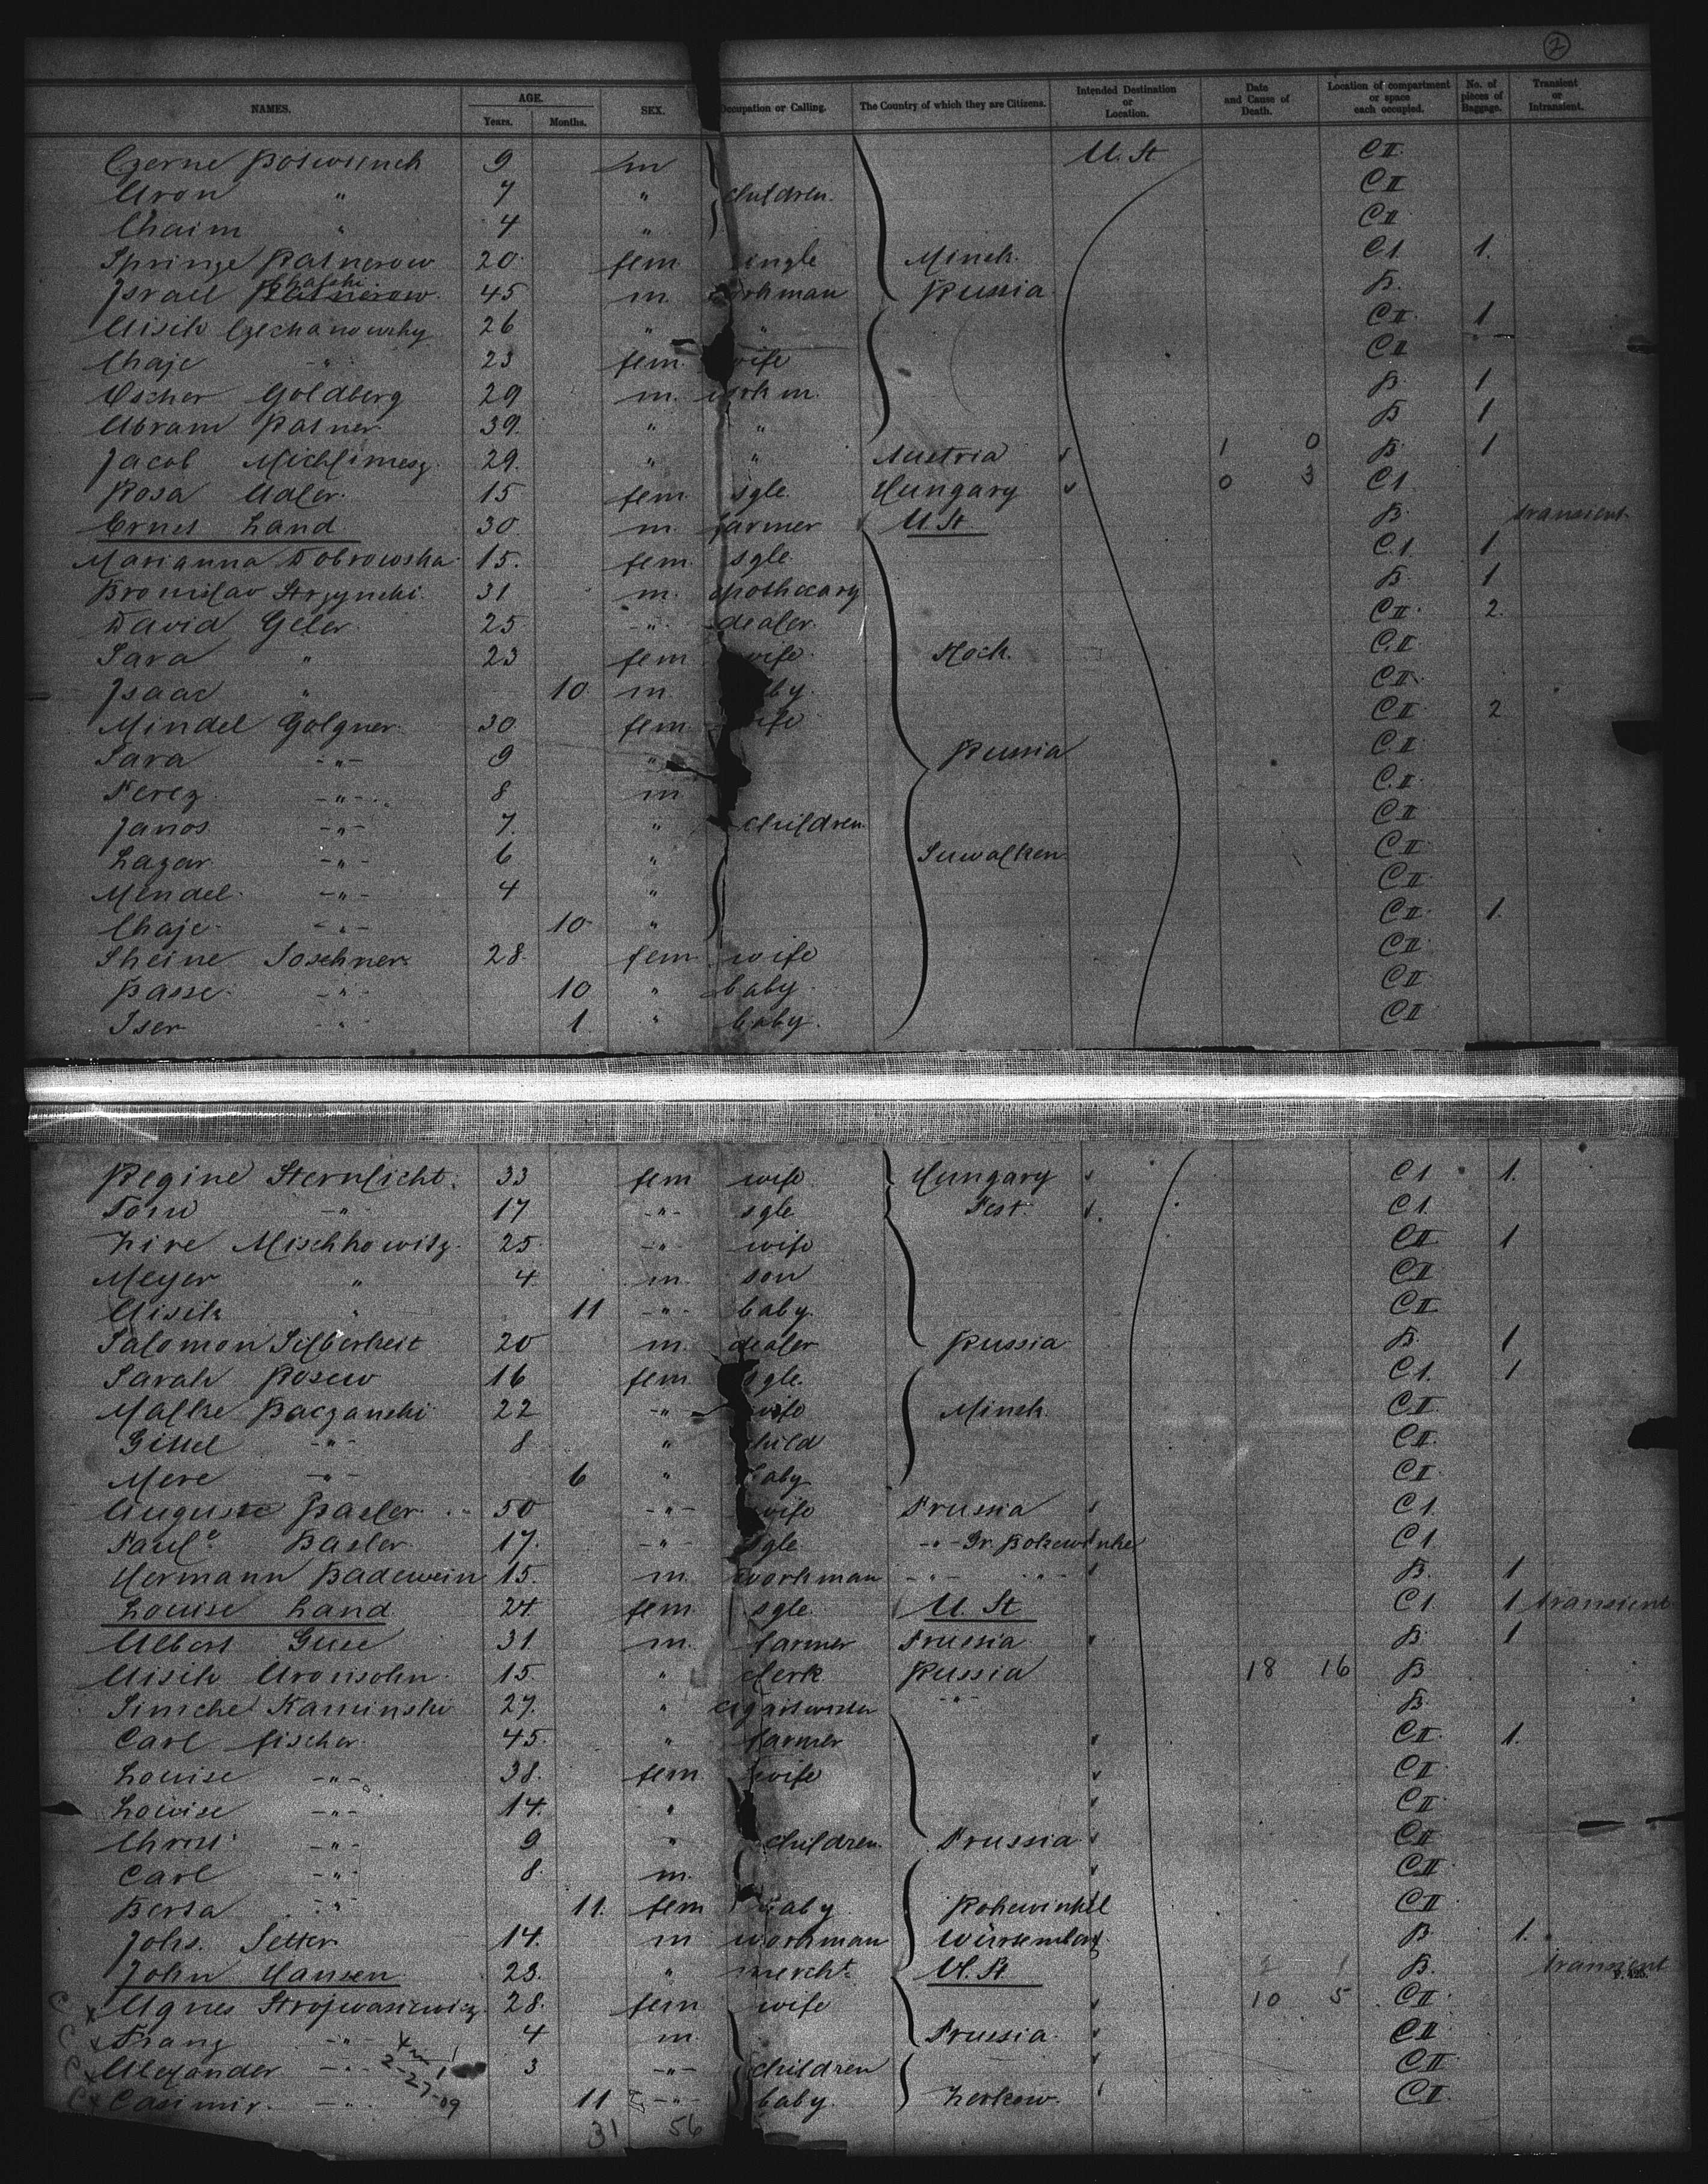 2
NAMES. AGE. Years. Months. SEX. Occupation or Calling. The Country of which they are Citizens. Intended Destination or Location. Date and Cause of Death. Location of compartment or space each occupied. No. of pieces of Baggage. Transient or Intransient.
Czerne 9 m U. St C II
Aron " 7 " children C II
Chaim " 4 " C II
Springe Ratnerow 20 fem single Minsk C 1 1.
Israel 45 m. workman Russia B.
Aisik Czechanowsky 26 " " C II 1
Chaje " 23 fem. wife C II
Oscher Goldberg 29 m. workm. B 1
Abram Ratner 39. " " B 1
Jacob 29. " " Austria 1 0 B 1
Rosa Adler 15 fem sgle. Hungary 0 3 C 1
Ernst Land 30 m. farmer U. St B. transient
Marianna Dobrowska 15. fem. sgle. C. 1. 1
Bronislav 31 m. apothecary B. 1
David Geler 25 -"- dealer. C II 2.
Sara " 23 fem wife C. II
Isaac " 10 m. baby. C II
Mindel Golgner 30 fem. wife C II 2
Sara -"- 9 " Russia C. II
Perez -"- 8 m C. II
Janos -"- 7. " children C II
Lazar -"- 6 " Suwalken C II
Mendel -"- 4 " C II
Chaje -"- 10 " C II 1.
Sheine Soschner 28 fem wife C II
Basse -"- 10 " baby. C II
Iser -"- 1 " baby. C II
Regine Sternlicht. 33 fem wife Hungary C 1 1.
-"- 17 -"- sgle Pest C 1.
Zire Mischkowitz 25 -"- wife C II 1
Meyer " 4 m. son C II
Aisik " 11 -"- baby. C II
Salomon Silberkeit 20 m. dealer Russia B. 1
Sarah Rosew 16 fem sgle. C 1. 1
Malke Baczanski 22 -"- wife Minsk. C II
Gittel -"- 8 " child C II.
Mere -"- 6 " baby C II.
Auguste Basler 50 -"- wife Prussia C 1.
Paul.e Basler 17. -"- sgle -"- Gr. C 1
Hermann Badewein 15. m. workman -"- -"- B. 1
Louise Land 24. fem. sgle. U. St C 1. 1 transient
Albert Guse 31. m. farmer Prussia B. 1
Aisik Aronsohn 15. " clerk Russia 18 16 B
Simche Kaminski 27. " -"- B.
Carl Fischer 45. " farmer C II. 1.
Louise -"- 38. fem wife C II
Louise -"- 14. " C II
Christ. -"- 9 " children Prussia C II
Carl -"- 8. m. C II
Berta -"- 11. fem baby C II
Johs. Setter 14. m workman Würtemberg B. 1.
John Hansen 23. " mercht. U. St. 2 1 B. transient
C x Agnes 28. fem wife 10 5 C II
C x Franz -"- 4 m. Prussia C II
C x Alexander -"- 2-27-09 3 -"- children C II
C x Casimir. -"- 11 -"- baby. Zerkow. C II
31 56